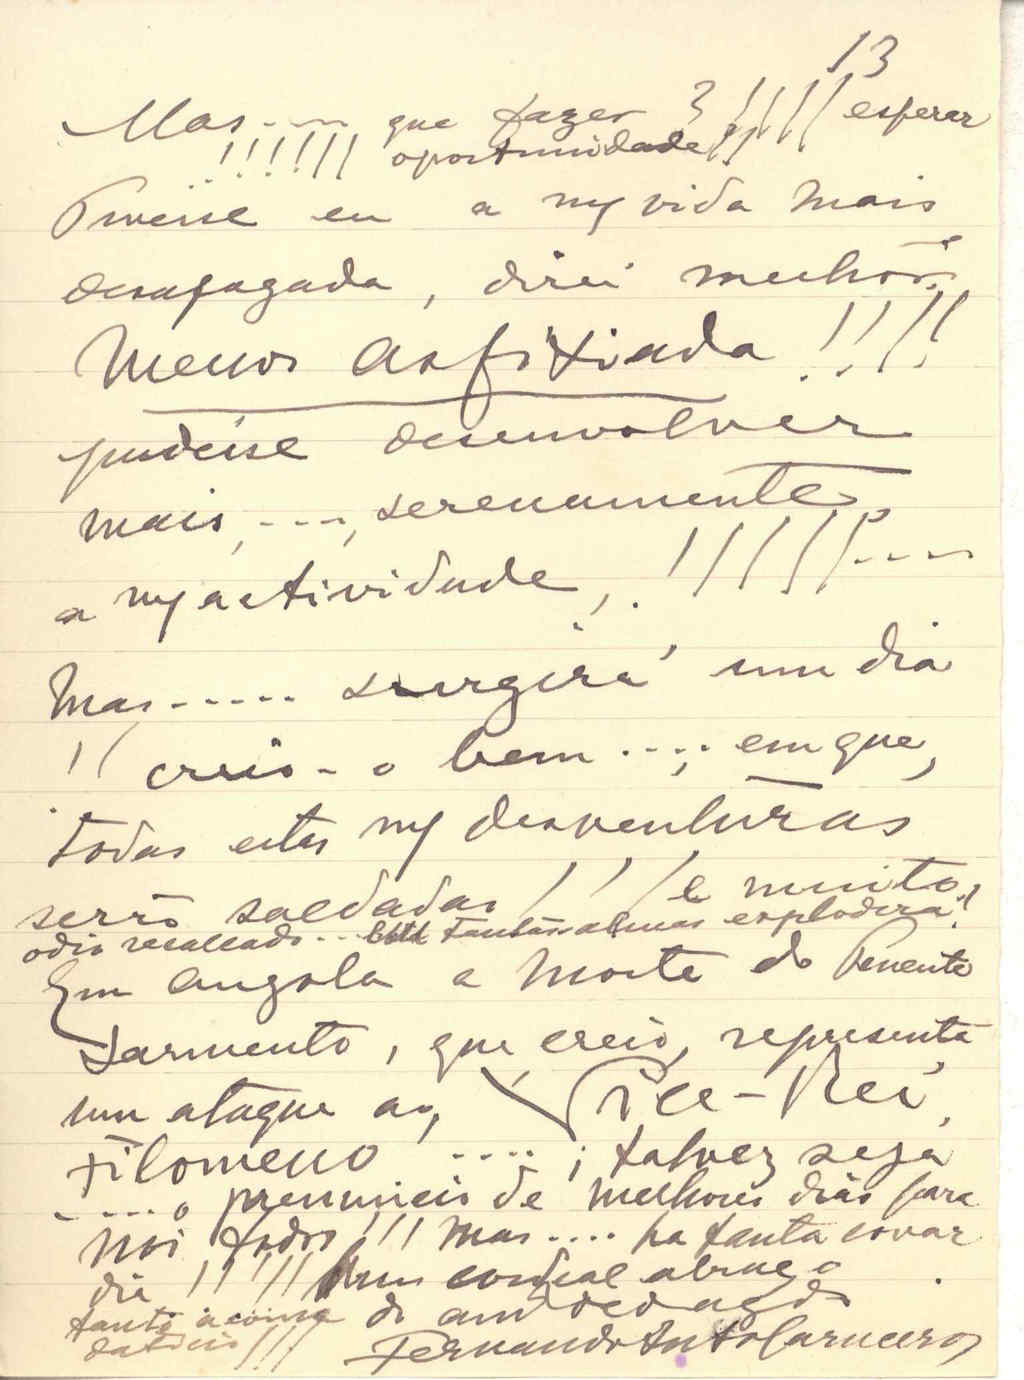 13
Mas.... que fazer ? !!!!! esperar
!!!!!! oportunidade!!
Tivesse eu a m/ vida mais
desafogada, direi melhor:
Menos asfixiada !!!!
pudesse desenvolver
mais, ...., serenamente,
a m/ actividade, !!!!!!....
Mas..... surgirá um dia
!! creio-o bem ....; em que,
todas estas m/ desventuras
serão saldadas !!! e muito
odio recalcado... tantas almas explodirá!
Em Angola a morte do Tenente
Sarmento, que creio, representa
um ataque ao, Vice-Rei,
Filomeno ....; talvez seja
.....o prenuncio de melhores dias para
Nós todos !!! Mas.... ha tanta covar
dia !!!!! Um cordial abraço
do am/ dedicado
tanto
Fernando